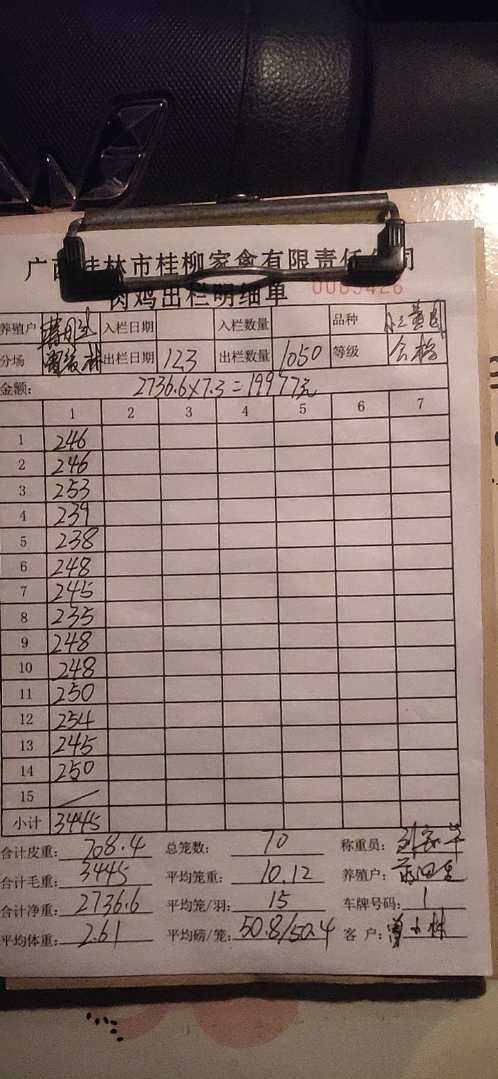 广西桂林市桂柳家禽有限责任公司
肉鸡出栏明细单
养殖户 入栏日期 入栏数量 品种
分场 出栏日期 123 出栏数量 1050 等级 合格
金额: 2736.6×7.3=19977元
1 2 3 4 5 6 7
1 246
2 246
3 253
4 239
5 238
6 248
7 245
8 235
9 248
10 248
11 250
12 254
13 245
14 250
15
小计 3445
合计皮重: 708.4 总笼数: 70 称重员:
合计毛重: 3445 平均笼重: 10.12 养殖户:
合计净重: 2736.6 平均笼/羽: 15 车牌号码: 1
平均体重: 2.61 平均磅/笼: 50.8/50.4 客户: